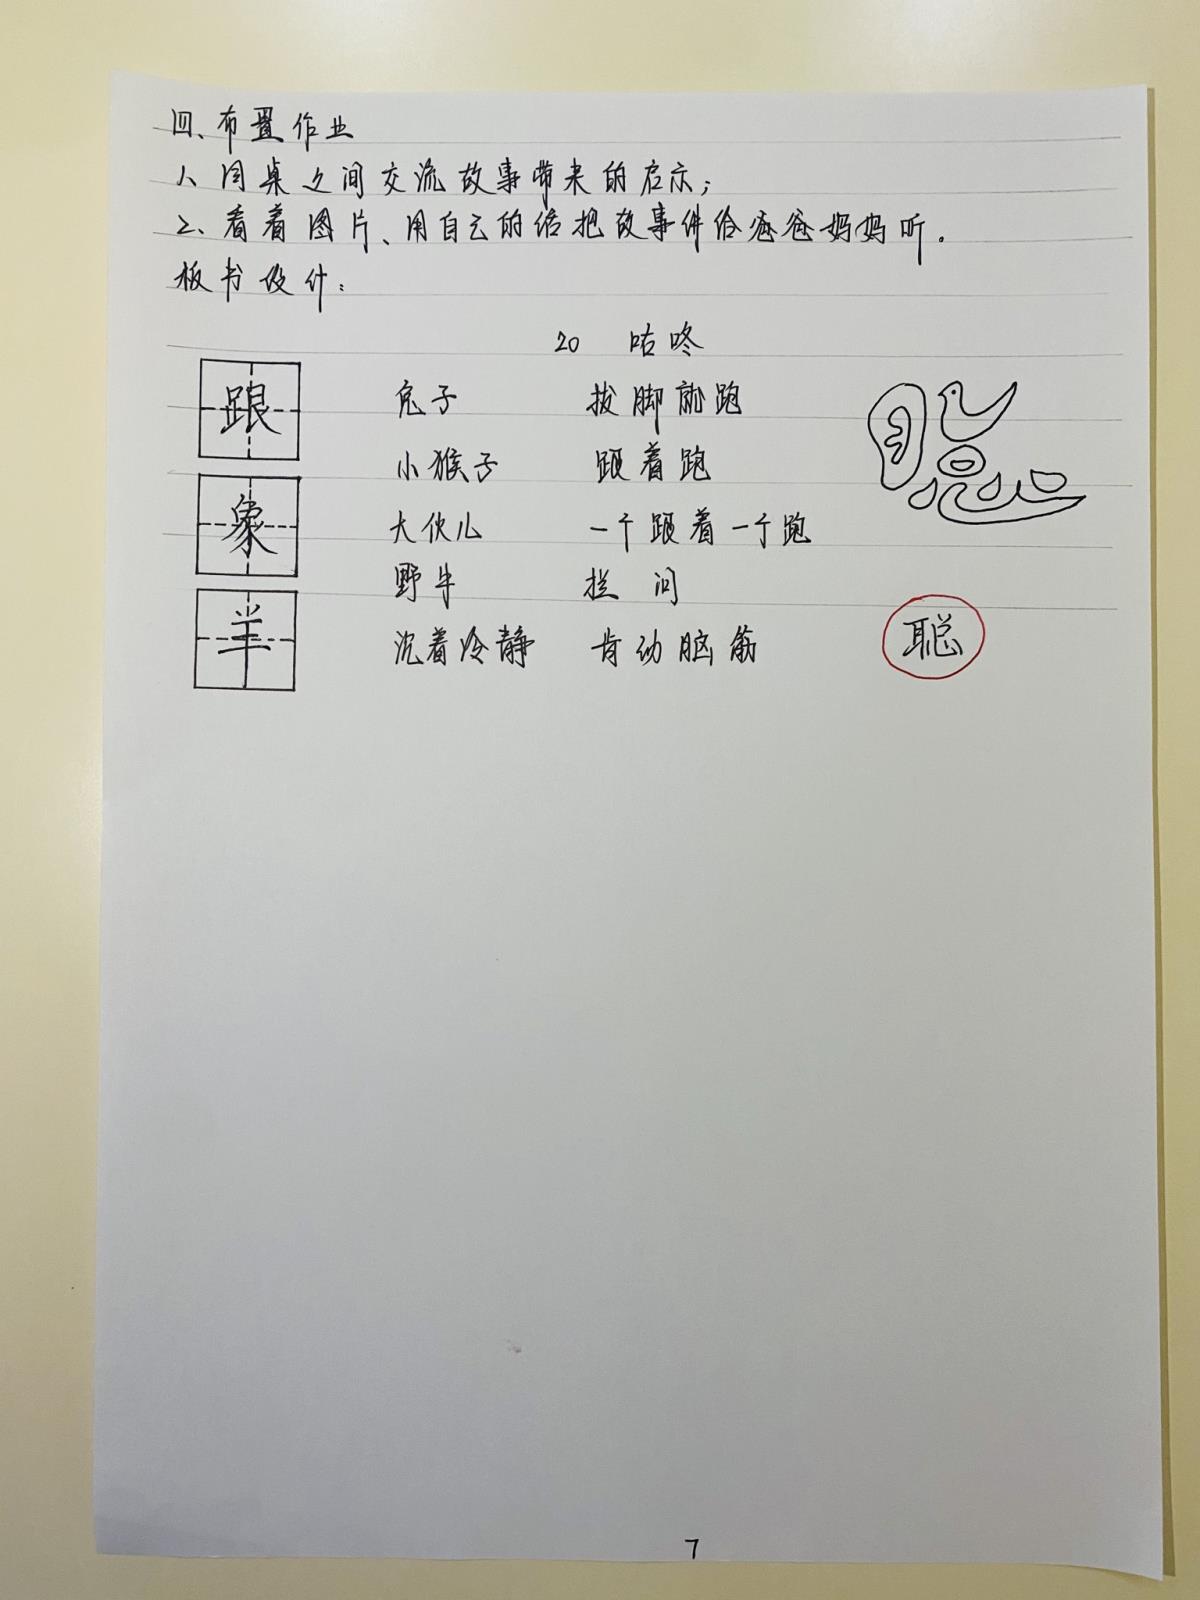 四、布置作业
1、同桌之间交流故事带来的启示；
2、看着图片、用自己的话把故事件给爸爸妈妈听。
板书设计：
20 咕咚
跟 兔子 拔脚就跑
小猴子 跟着跑
象 大伙儿 一个跟着一个跑
野牛 拦问
羊 沉着冷静 肯动脑筋 聪
7